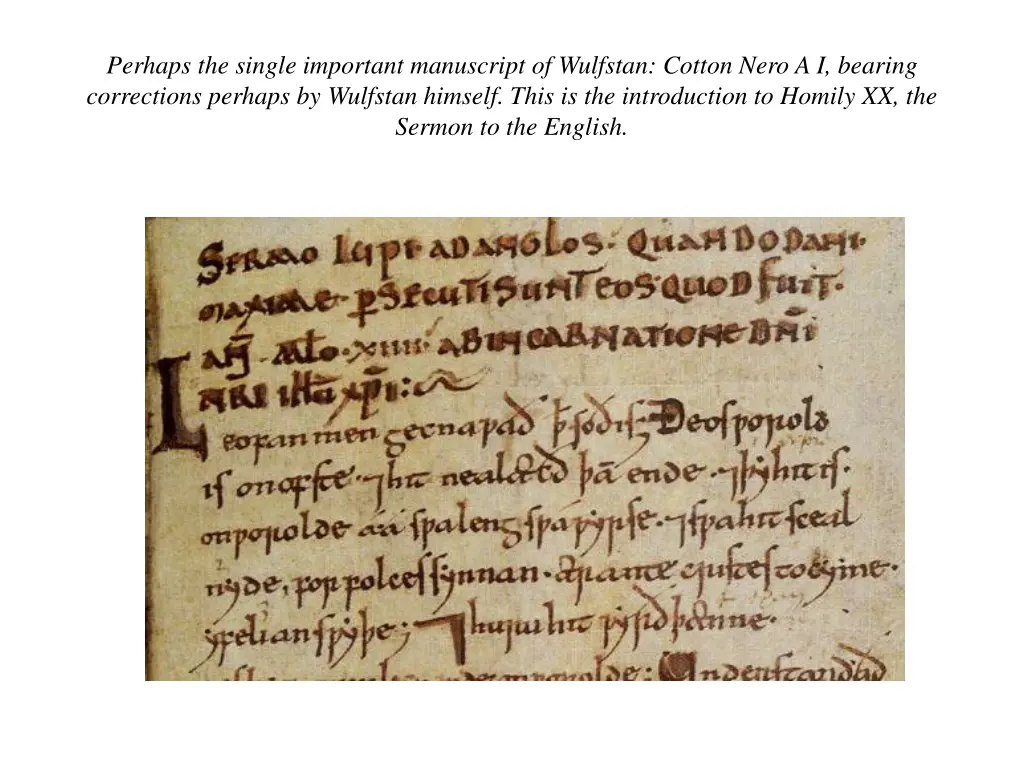 Perhaps the single important manuscript of Wulfstan: Cotton Nero A I, bearing
corrections perhaps by Wulfstan himself. This is the introduction to Homily XX, the
Sermon to the English.
SERMO LUPI AD ANGLOS· QUANDO DANI·
MAXIME· ꝑSECUTI SUNT EOS· QUOD FUIT·
AÑ· XIIII· AB INCARNATIONE DN̄I
NRI IHU XP̄I:
Leofan men gecnaƿað ꝥ soð is; Ðeos ƿorold
is on ofste· ⁊ hit nealæcð þā ende· ⁊ þy hit is·
on ƿorolde aa sƿa leng sƿa ƿyrse· ⁊ sƿa hit sceal
nyde, for folces synnan· ær antecristes tocyme·
yfelian sƿyþe; ⁊ huru hit ƿyrð þænne·
on ƿorolde; Understandað